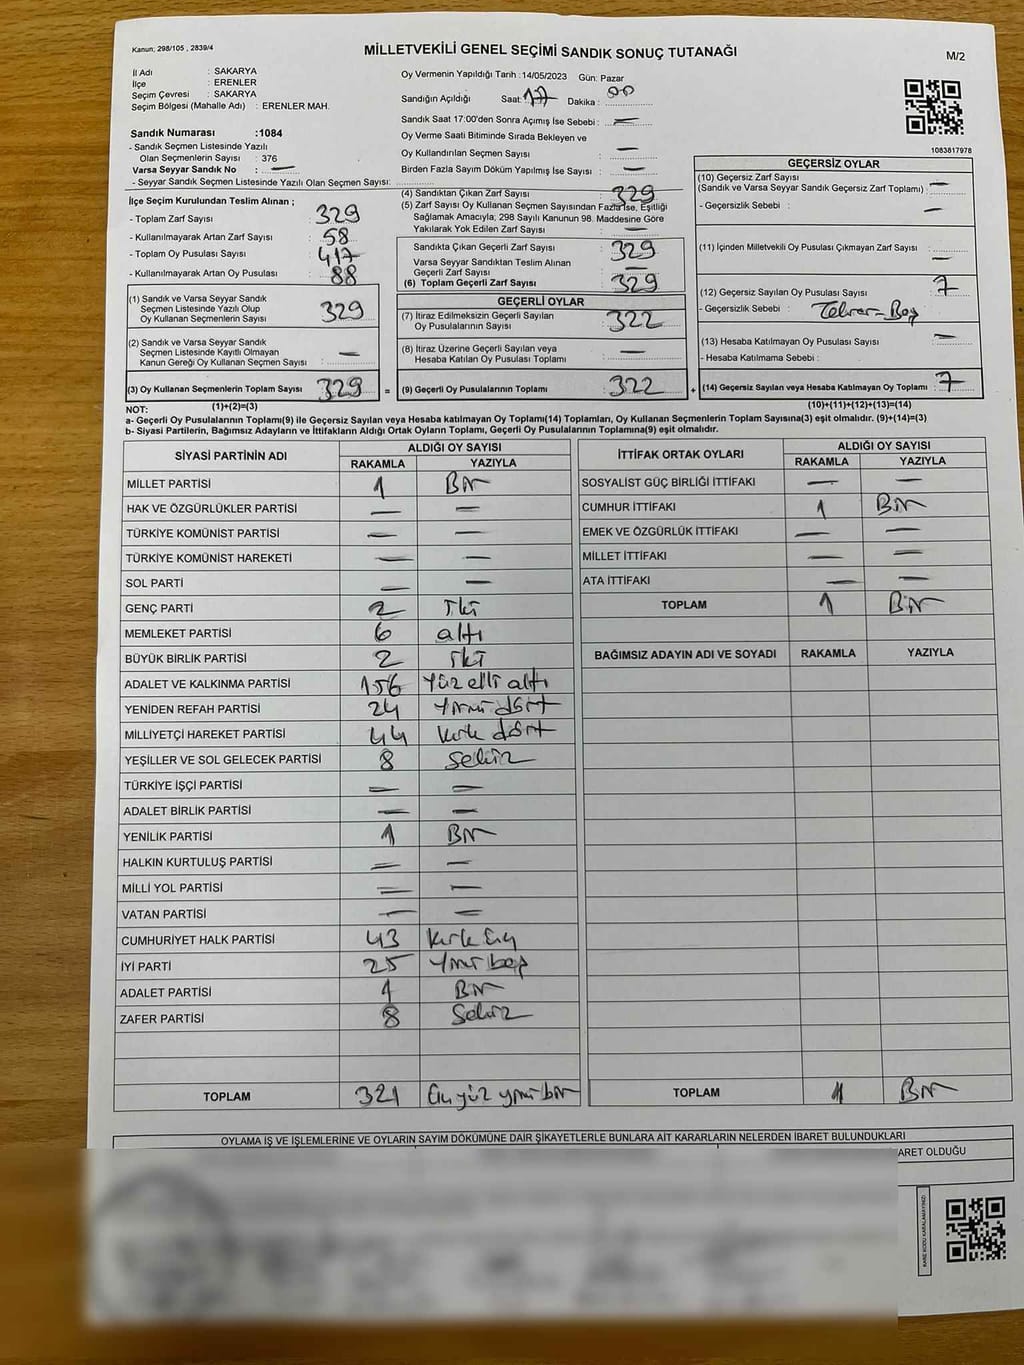 Kanun; 298/105 , 2839/4
MİLLETVEKİLİ GENEL SEÇİMİ SANDIK SONUÇ TUTANAĞI
M/2
İl Adı : SAKARYA
İlçe : ERENLER
Seçim Çevresi : SAKARYA
Seçim Bölgesi (Mahalle Adı) : ERENLER MAH.
Sandık Numarası :1084
- Sandık Seçmen Listesinde Yazılı
Olan Seçmenlerin Sayısı : 376
Varsa Seyyar Sandık No : —
- Seyyar Sandık Seçmen Listesinde Yazılı Olan Seçmen Sayısı:
Oy Vermenin Yapıldığı Tarih : 14/05/2023 Gün: Pazar
Sandığın Açıldığı Saat: 17 Dakika : 00
Sandık Saat 17:00'den Sonra Açımış İse Sebebi : —
Oy Verme Saati Bitiminde Sırada Bekleyen ve
Oy Kullandırılan Seçmen Sayısı : —
Birden Fazla Sayım Döküm Yapılmış İse Sayısı : —
1083817978
İlçe Seçim Kurulundan Teslim Alınan ;
- Toplam Zarf Sayısı : 329
- Kullanılmayarak Artan Zarf Sayısı : 58
- Toplam Oy Pusulası Sayısı : 417
- Kullanılmayarak Artan Oy Pusulası : 88
(1) Sandık ve Varsa Seyyar Sandık
Seçmen Listesinde Yazılı Olup
Oy Kullanan Seçmenlerin Sayısı : 329
(2) Sandık ve Varsa Seyyar Sandık
Seçmen Listesinde Kayıtlı Olmayan
Kanun Gereği Oy Kullanan Seçmen Sayısı : —
(3) Oy Kullanan Seçmenlerin Toplam Sayısı : 329 =
(1)+(2)=(3)
(4) Sandıktan Çıkan Zarf Sayısı : 329
(5) Zarf Sayısı Oy Kullanan Seçmen Sayısından Fazla İse, Eşitliği
Sağlamak Amacıyla; 298 Sayılı Kanunun 98. Maddesine Göre
Yakılarak Yok Edilen Zarf Sayısı : —
Sandıkta Çıkan Geçerli Zarf Sayısı : 329
Varsa Seyyar Sandıktan Teslim Alınan
Geçerli Zarf Sayısı : —
(6) Toplam Geçerli Zarf Sayısı : 329
GEÇERLİ OYLAR
(7) İtiraz Edilmeksizin Geçerli Sayılan
Oy Pusulalarının Sayısı : 322
(8) İtiraz Üzerine Geçerli Sayılan veya
Hesaba Katılan Oy Pusulası Toplamı : —
(9) Geçerli Oy Pusulalarının Toplamı : 322 +
GEÇERSİZ OYLAR
(10) Geçersiz Zarf Sayısı
(Sandık ve Varsa Seyyar Sandık Geçersiz Zarf Toplamı) : —
- Geçersizlik Sebebi : —
(11) İçinden Milletvekili Oy Pusulası Çıkmayan Zarf Sayısı : —
(12) Geçersiz Sayılan Oy Pusulası Sayısı : 7
- Geçersizlik Sebebi :
(13) Hesaba Katılmayan Oy Pusulası Sayısı : —
- Hesaba Katılmama Sebebi :
(14) Geçersiz Sayılan veya Hesaba Katılmayan Oy Toplamı : 7
(10)+(11)+(12)+(13)=(14)
NOT:
a- Geçerli Oy Pusulalarının Toplamı(9) ile Geçersiz Sayılan veya Hesaba katılmayan Oy Toplamı(14) Toplamları, Oy Kullanan Seçmenlerin Toplam Sayısına(3) eşit olmalıdır. (9)+(14)=(3)
b- Siyasi Partilerin, Bağımsız Adayların ve İttifakların Aldığı Ortak Oyların Toplamı, Geçerli Oy Pusulalarının Toplamına(9) eşit olmalıdır.
SİYASİ PARTİNİN ADI ALDIĞI OY SAYISI
RAKAMLA YAZIYLA
MİLLET PARTİSİ 1 Bir
HAK VE ÖZGÜRLÜKLER PARTİSİ — —
TÜRKİYE KOMÜNİST PARTİSİ — —
TÜRKİYE KOMÜNİST HAREKETİ — —
SOL PARTİ — —
GENÇ PARTİ 2 iki
MEMLEKET PARTİSİ 6 altı
BÜYÜK BİRLİK PARTİSİ 2 iki
ADALET VE KALKINMA PARTİSİ 156 Yüz elli altı
YENİDEN REFAH PARTİSİ 24 Yirmi dört
MİLLİYETÇİ HAREKET PARTİSİ 44 Kırk dört
YEŞİLLER VE SOL GELECEK PARTİSİ 8 Sekiz
TÜRKİYE İŞÇİ PARTİSİ — —
ADALET BİRLİK PARTİSİ — —
YENİLİK PARTİSİ 1 Bir
HALKIN KURTULUŞ PARTİSİ — —
MİLLİ YOL PARTİSİ — —
VATAN PARTİSİ — —
CUMHURİYET HALK PARTİSİ 43 Kırk üç
İYİ PARTİ 25 Yirmi beş
ADALET PARTİSİ 1 Bir
ZAFER PARTİSİ 8 Sekiz
TOPLAM 321 Üç yüz yirmi bir
İTTİFAK ORTAK OYLARI ALDIĞI OY SAYISI
RAKAMLA YAZIYLA
SOSYALİST GÜÇ BİRLİĞİ İTTİFAKI — —
CUMHUR İTTİFAKI 1 Bir
EMEK VE ÖZGÜRLÜK İTTİFAKI — —
MİLLET İTTİFAKI — —
ATA İTTİFAKI — —
TOPLAM 1 Bir
BAĞIMSIZ ADAYIN ADI VE SOYADI RAKAMLA YAZIYLA
TOPLAM 1 Bir
OYLAMA İŞ VE İŞLEMLERİNE VE OYLARIN SAYIM DÖKÜMÜNE DAİR ŞİKAYETLERLE BUNLARA AİT KARARLARIN NELERDEN İBARET BULUNDUKLARI
ARET OLDUĞU
KARE KODU KARALAMAYINIZ!